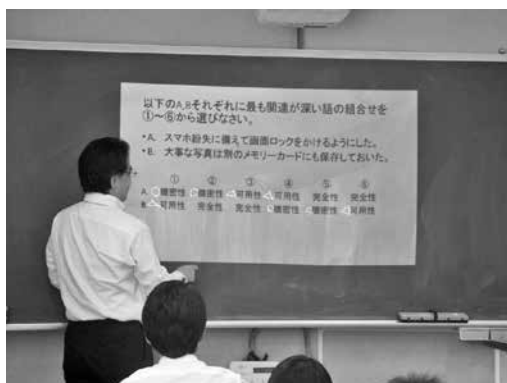 以下のA,Bそれぞれに最も関連が深い語の組合せを
①～⑥から選びなさい。
・A. スマホ紛失に備えて画面ロックをかけるようにした。
・B. 大事な写真は別のメモリーカードにも保存しておいた。
① ② ③ ④ ⑤ ⑥
A. 機密性 機密性 可用性 可用性 完全性 完全性
B. 可用性 完全性 完全性 機密性 機密性 可用性